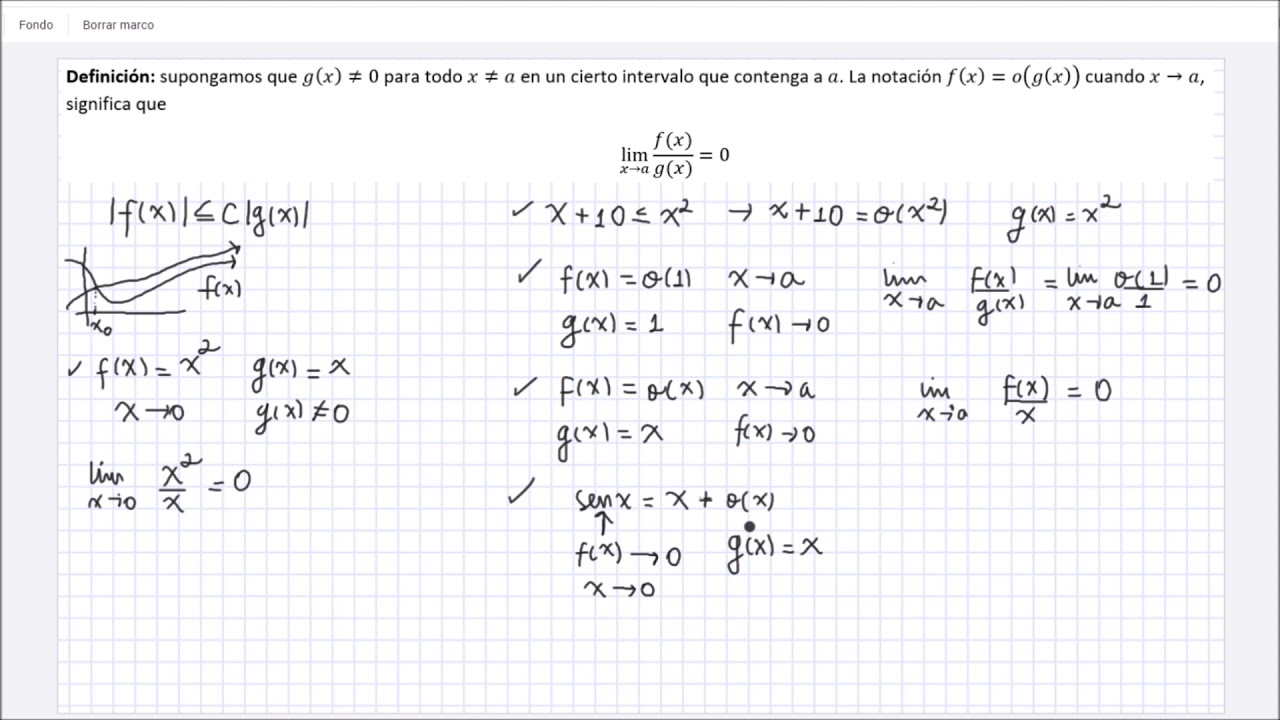 Fondo Borrar marco
Definición: supongamos que g(x) ≠ 0 para todo x ≠ a en un cierto intervalo que contenga a a. La notación f(x) = o(g(x)) cuando x → a,
significa que
lim x→a f(x)/g(x) = 0
|f(x)| ≤ C|g(x)|
f(x)
x₀
✓ f(x) = x² g(x) = x
x → 0 g(x) ≠ 0
lim x→0 x²/x = 0
✓ x + 10 ≤ x² → x + 10 = o(x²) g(x) = x²
✓ f(x) = o(1) x → a lim x→a f(x)/g(x) = lim x→a o(1)/1 = 0
g(x) = 1 f(x) → 0
✓ f(x) = o(x) x → a lim x→a f(x)/x = 0
g(x) = x f(x) → 0
✓ sen x = x + o(x)
↑
f(x) → 0 g(x) = x
x → 0